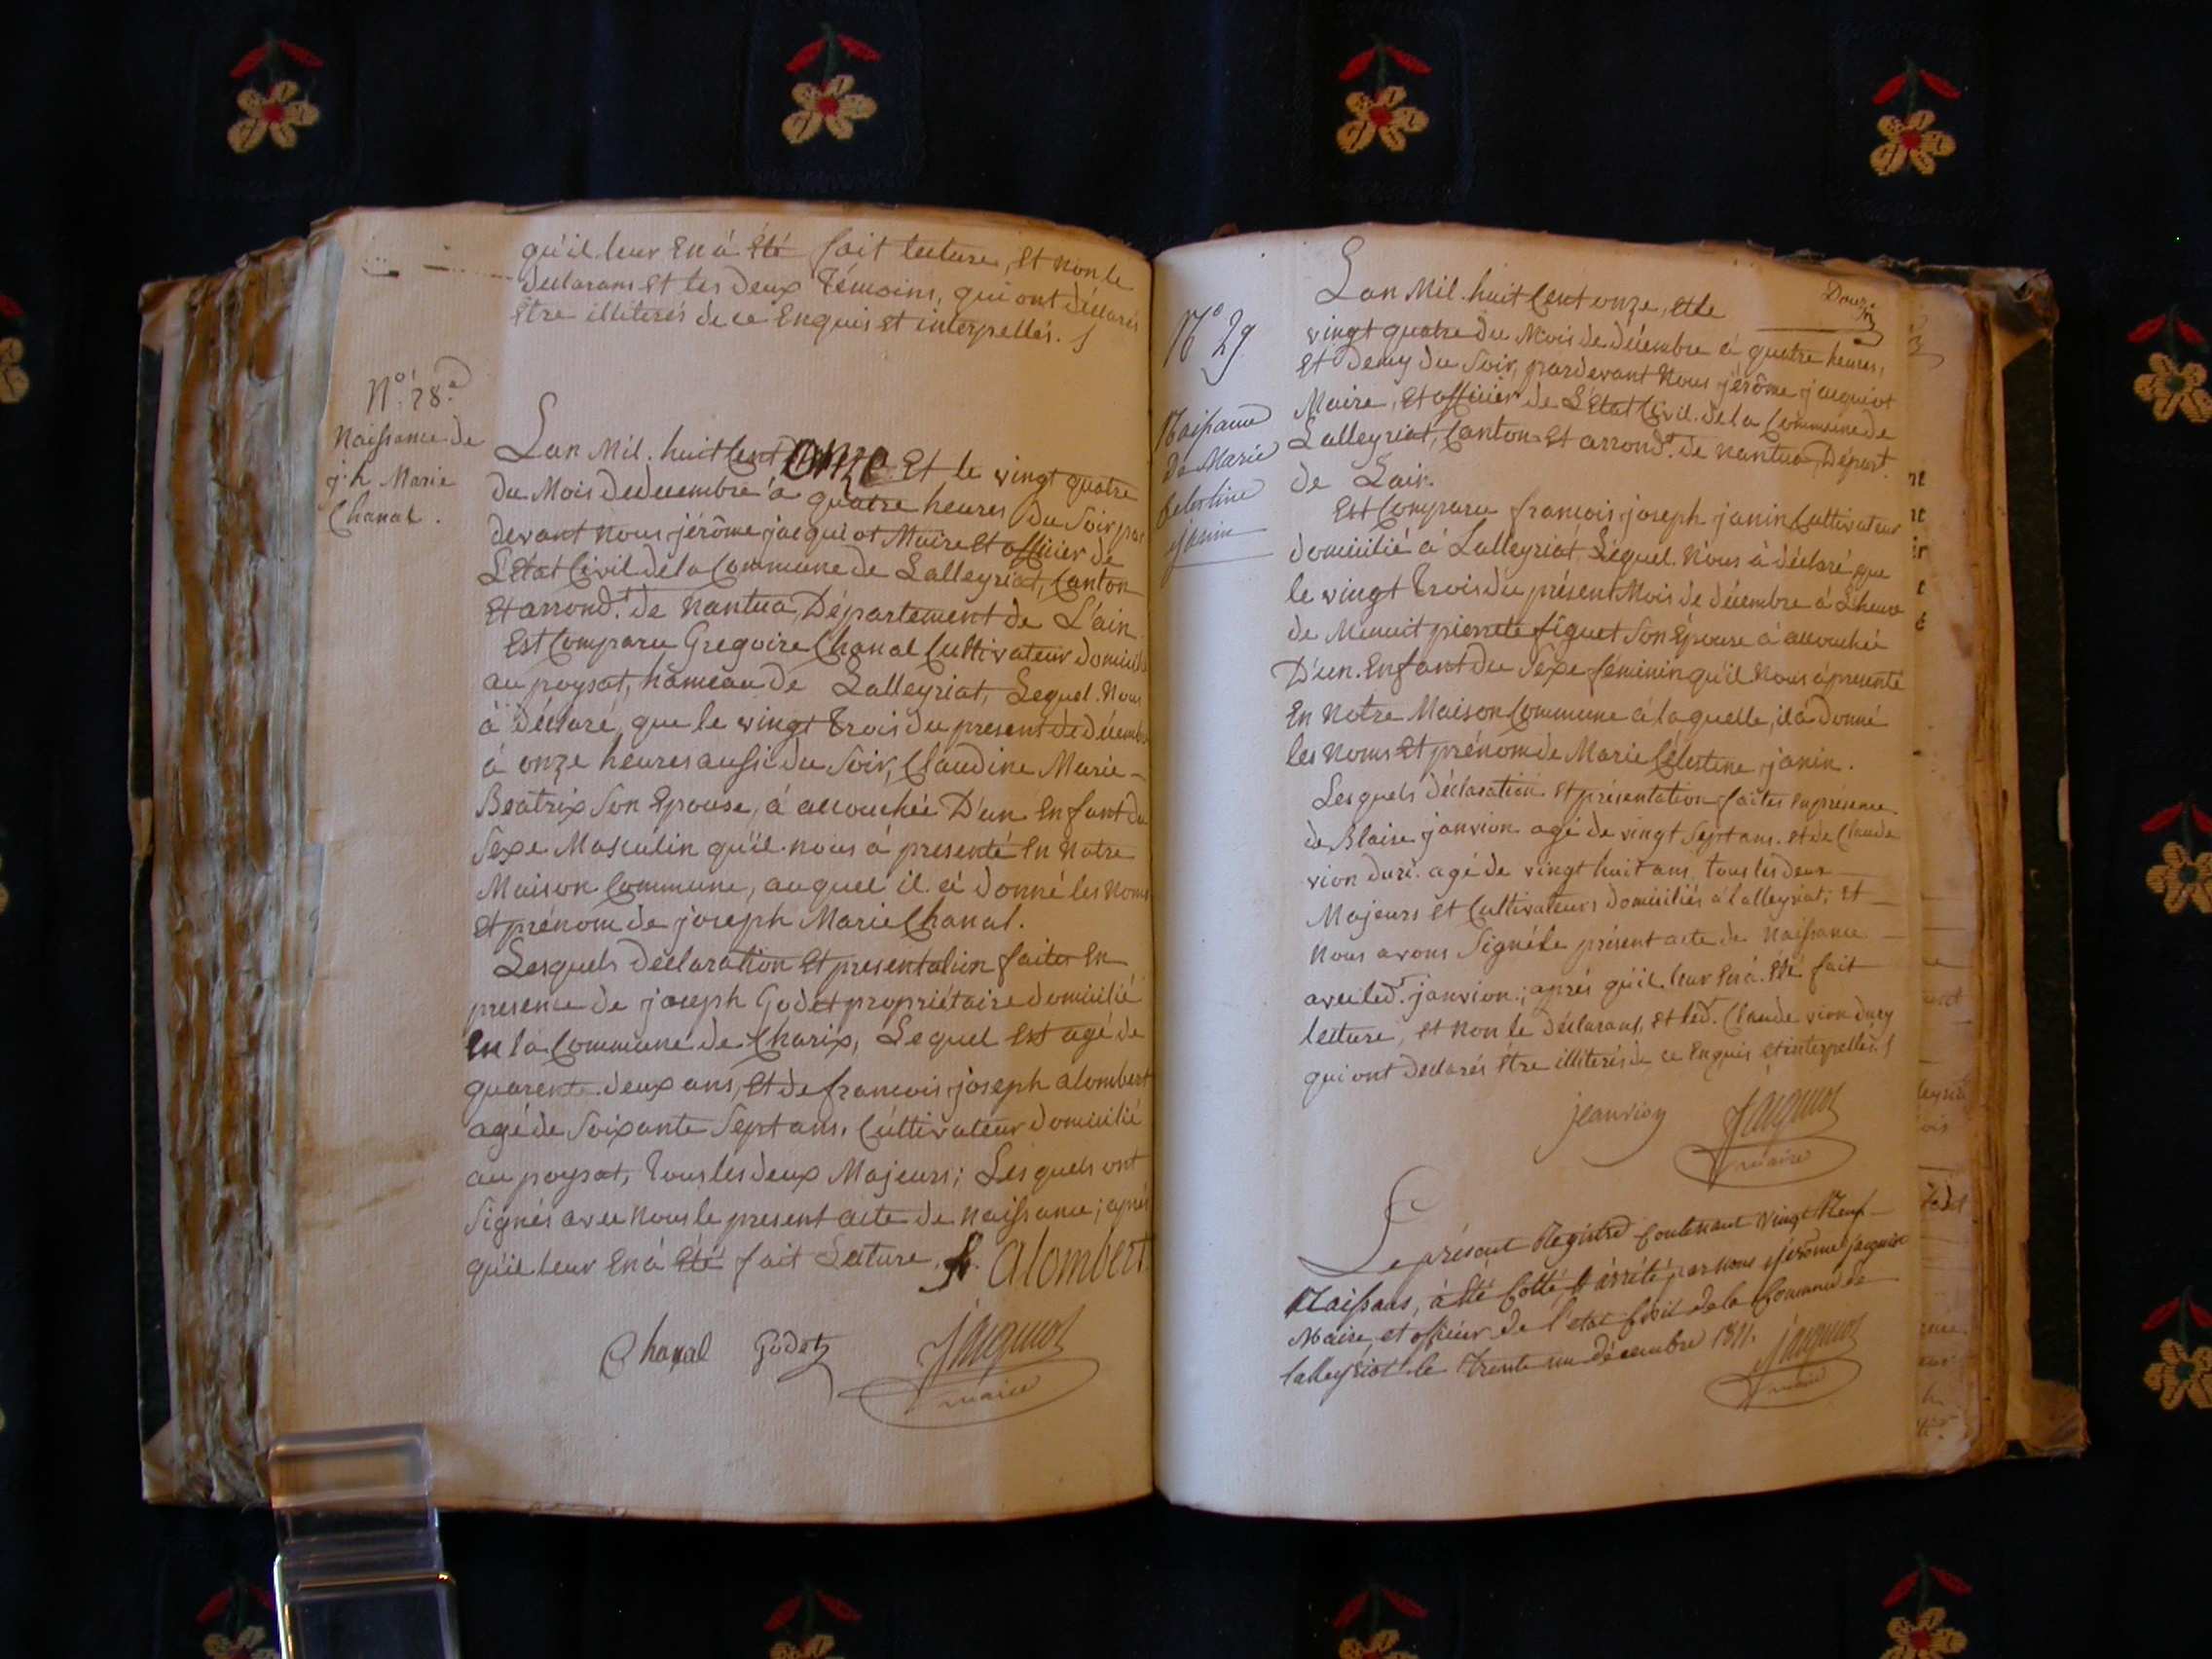 qu'il leur en à été fait lecture, et non le
declarans et les deux témoins, qui ont déclarés
être illiterés de ce enquis et interpellés.
N.º 28.e
Naissance de
j.h Marie
Chanal.
Lan Mil. huit Cent onze Et le vingt quatre
du Mois de decembre à quatre heures du Soir par
devant nous jérôme jacquiot Maire Et officier de
L'état Civil de la Commune de Lalleyriat, Canton
et arrond.t de nantua, Département de L'ain
Est Comparu Gregoire Chanal Cultivateur domicilié
au poysat, hâmeau de Lalleyriat, Lequel. Nous
à déclaré, que le vingt trois du present de décembre
à onze heures aussi du Soir, Claudine Marie
Beatrix Son Epouse, à accouchée D'un enfant du
Sexe Masculin qu'il nous à presenté en notre
Maison Commune, auquel il à donné les noms
et prénom de joseph Marie Chanal.
Lesquels déclaration et presentation faites en
presence de joseph Godet propriétaire domicilié
en la Commune de Charix, Lequel est agé de
quarente deux ans, et de francois joseph alombert
agé de Soixante Sept ans, Cultivateur domicilié
au poysat, tous les deux Majeurs; Lesquels ont
Signés avec nous le present acte de naissance; après
qu'il leur en à été fait Lecture, fr. Alombert
Chanal Godet Jacquiot
maire
Douze
Lan Mil. huit Cent onze, et le
vingt quatre du Mois de décembre à quatre heures,
et demy du Soir, pardevant Nous jérôme jacquiot
Maire, et officier de L'état Civil de la Commune de
Lalleyriat, Canton et arrond.t de nantua, Départ.t
de Lain.
Nº 29
Naissance
de Marie
Celestine
janin
Est Comparu francois joseph janin Cultivateur
domicilié à Lalleyriat, Lequel. Nous à déclaré que
le vingt trois du présent Mois de décembre à L'heure
de Menuit pierrete figuet Son Epouse à accouchée
D'un Enfant du Sexe féminin qu'il Nous à presenté
en Notre Maison Commune à laquelle, il à donné
les Noms et prénom de Marie Célestine janin.
Lesquels déclaration et présentation faites en présence
de Blaise janvion agé de vingt Sept ans. et de Claude
vion duri. agé de vingt huit ans, tous les deux
Majeurs et Cultivateurs domiciliés à lalleyriat; et
Nous avons Signé le présent acte de Naissance
avec led.t janvion; après qu'il leur en à été fait
lecture, et non le déclarant, et led.t Claude vion dury
qui ont declarés être illiterés de ce enquis et interpellés.
jeanvion Jacquiot
maire
Le présent Régistre Contenant vingt Neuf
Naissans, à été Cotté & árrété par nous jérôme jacquiot
Maire, et officier de l'etat Civil de la Commune de
lalleyriat le trente un décembre 1811. jacquiot
maire